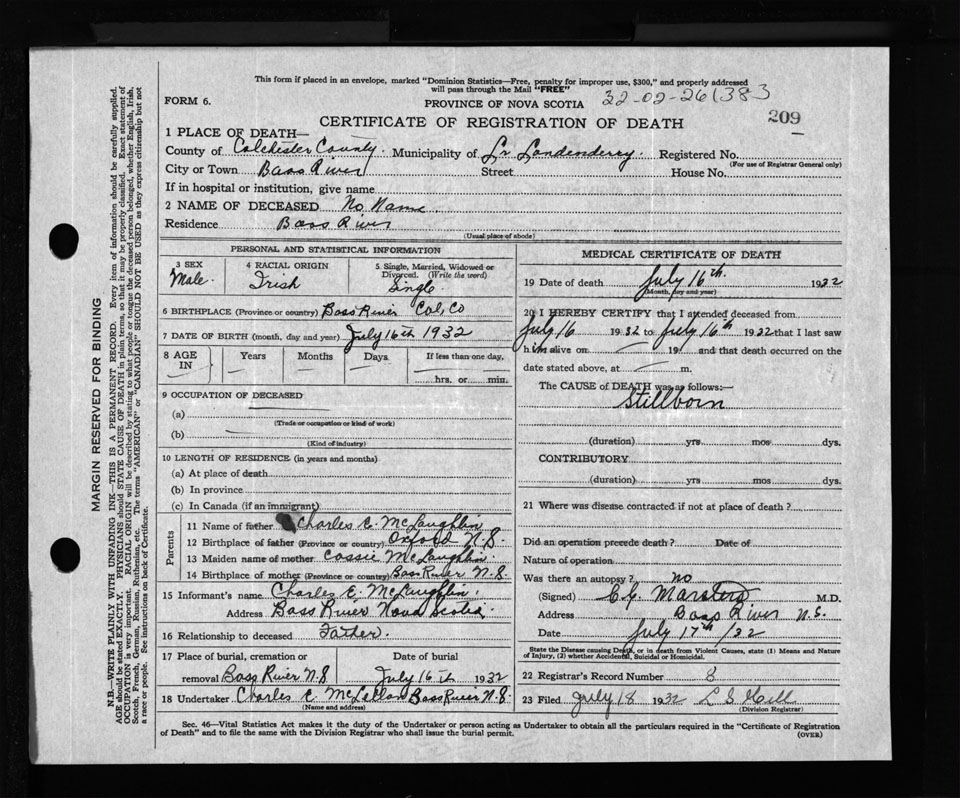 This form if placed in an envelope, marked "Dominion Statistics—Free, penalty for improper use, $300," and properly addressed
will pass through the Mail "FREE"
FORM 6.
PROVINCE OF NOVA SCOTIA
32-02-261383
CERTIFICATE OF REGISTRATION OF DEATH
209
1 PLACE OF DEATH—
County of Colchester County. Municipality of Lr Londenderry. Registered No.
(For use of Registrar General only)
City or Town Bass River Street House No.
If in hospital or institution, give name
2 NAME OF DECEASED No Name
Residence Bass River
(Usual place of abode)
PERSONAL AND STATISTICAL INFORMATION
3 SEX
Male.
4 RACIAL ORIGIN
Irish
5 Single, Married, Widowed or
Divorced. (Write the word)
Single
6 BIRTHPLACE (Province or country) Bass River Col, Co
7 DATE OF BIRTH (month, day and year) July 16th 1932
8 AGE
IN
Years
Months
Days
If less than one day,
hrs. or min.
9 OCCUPATION OF DECEASED
(a)
(Trade or occupation or kind of work)
(b)
(Kind of industry)
10 LENGTH OF RESIDENCE (in years and months)
(a) At place of death
(b) In province
(c) In Canada (if an immigrant)
Parents
11 Name of father Charles E. McLaughlin
12 Birthplace of father (Province or country) Oxford N.S.
13 Maiden name of mother Cassie McLaughlin
14 Birthplace of mother (Province or country) Bass River N.S.
15 Informant's name Charles E. McLaughlin.
Address Bass River Nova Scotia
16 Relationship to deceased Father.
17 Place of burial, cremation or
removal Bass River N.S
Date of burial
July 16th 1932
18 Undertaker Charles C. McLellan Bass River N.S.
(Name and address)
MEDICAL CERTIFICATE OF DEATH
19 Date of death July 16th. 1932
(Month, day and year)
20 I HEREBY CERTIFY that I attended deceased from
July 16 1932 to July 16th 1932 that I last saw
him alive on 19 and that death occurred on the
date stated above, at m.
The CAUSE of DEATH was as follows:—
Stillborn
(duration) yrs. mos. dys.
CONTRIBUTORY
(duration) yrs. mos. dys.
21 Where was disease contracted if not at place of death?
Did an operation precede death? Date of
Nature of operation
Was there an autopsy? no
(Signed) Marsters M.D.
Address Bass River N.S.
Date July 17th /32
State the Disease causing Death, or in death from Violent Causes, state (1) Means and Nature
of Injury, (2) whether Accidental, Suicidal or Homicidal.
22 Registrar's Record Number 8
23 Filed July 18 1932 L S Hill
(Division Registrar)
Sec. 46—Vital Statistics Act makes it the duty of the Undertaker or person acting as Undertaker to obtain all the particulars required in the "Certificate of Registration
of Death" and to file the same with the Division Registrar who shall issue the burial permit.
(OVER)
MARGIN RESERVED FOR BINDING
N.B.—WRITE PLAINLY WITH UNFADING INK—THIS IS A PERMANENT RECORD. Every item of information should be carefully supplied.
AGE should be stated EXACTLY. PHYSICIANS should STATE CAUSE OF DEATH in plain terms, so that it may be properly classified. Exact statement of
OCCUPATION is very important. RACIAL ORIGIN will be described by stating to what people or tongue the deceased person belonged, whether English, Irish,
Scotch, French, German, Russian, Ruthenian, etc. The terms "AMERICAN" or "CANADIAN" SHOULD NOT BE USED as they express citizenship but not
a race or people. See instructions on back of Certificate.